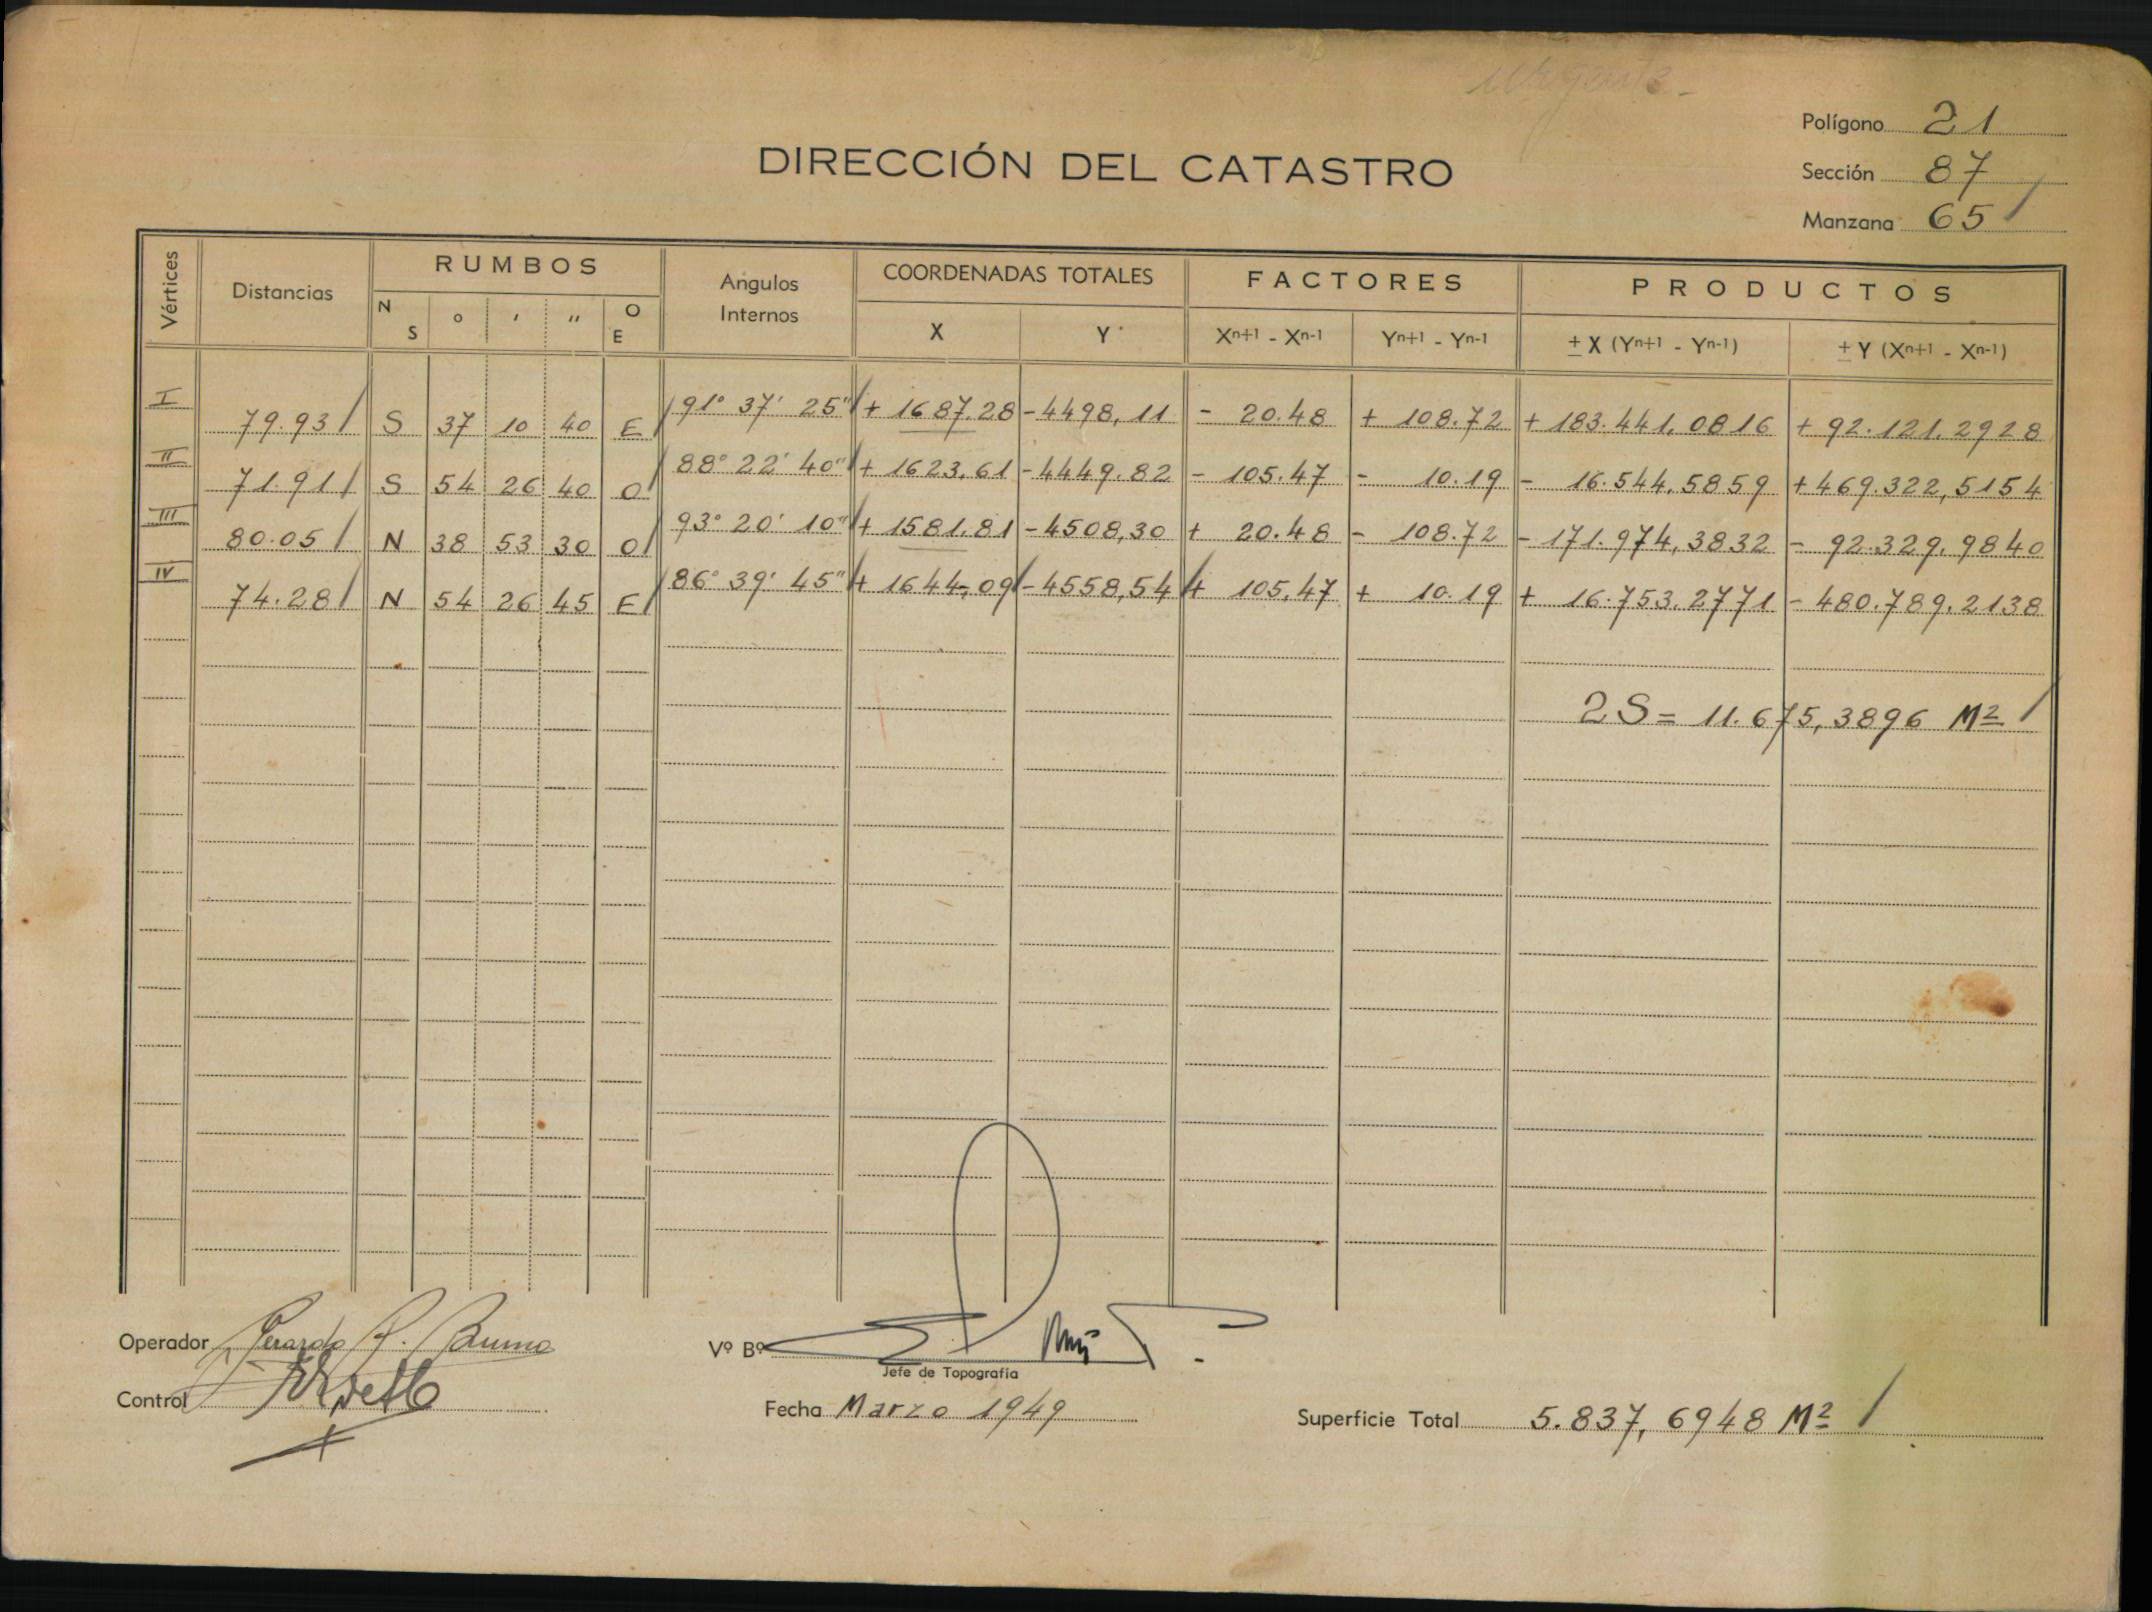 Polígono 21
DIRECCIÓN DEL CATASTRO
Sección 87
Manzana 65
Vértices Distancias RUMBOS Angulos Internos COORDENADAS TOTALES FACTORES PRODUCTOS
N S ° ' '' O E X Y Xn+1 - Xn-1 Yn+1 - Yn-1 ± X (Yn+1 - Yn-1) ± Y (Xn+1 - Xn-1)
I 79.93 S 37 10 40 E 91° 37' 25" + 1687.28 -4498,11 - 20.48 + 108.72 + 183.441,0816 + 92.121.2928
II 71.91 S 54 26 40 O 88° 22' 40" + 1623,61 -4449.82 - 105.47 - 10.19 - 16.544,5859 +469.322,5154
III 80.05 N 38 53 30 O 93° 20' 10" + 1581.81 -4508,30 + 20.48 - 108.72 - 171.974,3832 - 92.329.9840
IV 74.28 N 54 26 45 E 86° 39' 45" + 1644,09 -4558,54 + 105,47 + 10.19 + 16.753.2771 - 480.789.2138
2S = 11.675,3896 M²
Operador Gerardo A. Bruno
Vº Bº
Jefe de Topografía
Control
Fecha Marzo 1949
Superficie Total 5.837,6948 M²